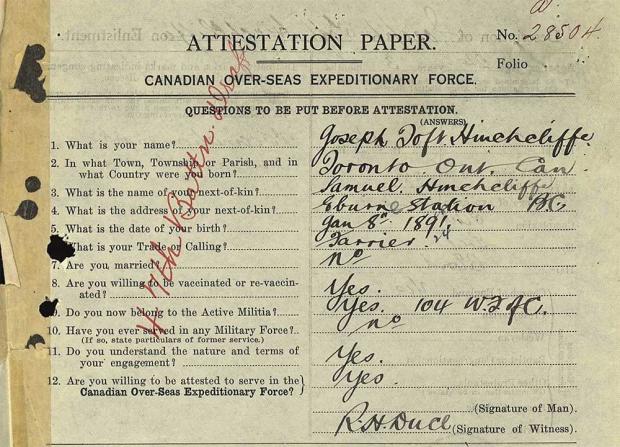 ATTESTATION PAPER.
No. 28504
Folio
CANADIAN OVER-SEAS EXPEDITIONARY FORCE.
QUESTIONS TO BE PUT BEFORE ATTESTATION.
(ANSWERS)
1. What is your name? Joseph Toft Hinchcliffe
2. In what Town, Township or Parish, and in
what Country were you born? Toronto Ont. Can
3. What is the name of your next-of-kin? Samuel Hinchcliffe
4. What is the address of your next-of-kin? Eburne Station BC
5. What is the date of your birth? Jan 8th 1891
24
What is your Trade or Calling? Farrier
7. Are you married? no
8. Are you willing to be vaccinated or re-vaccin-
ated? Yes.
9. Do you now belong to the Active Militia? Yes. 104
10. Have you ever served in any Military Force? no
(If so, state particulars of former service.)
11. Do you understand the nature and terms of
your engagement? Yes.
12. Are you willing to be attested to serve in the
Canadian Over-Seas Expeditionary Force? Yes.
(Signature of Man).
(Signature of Witness).
Battn.